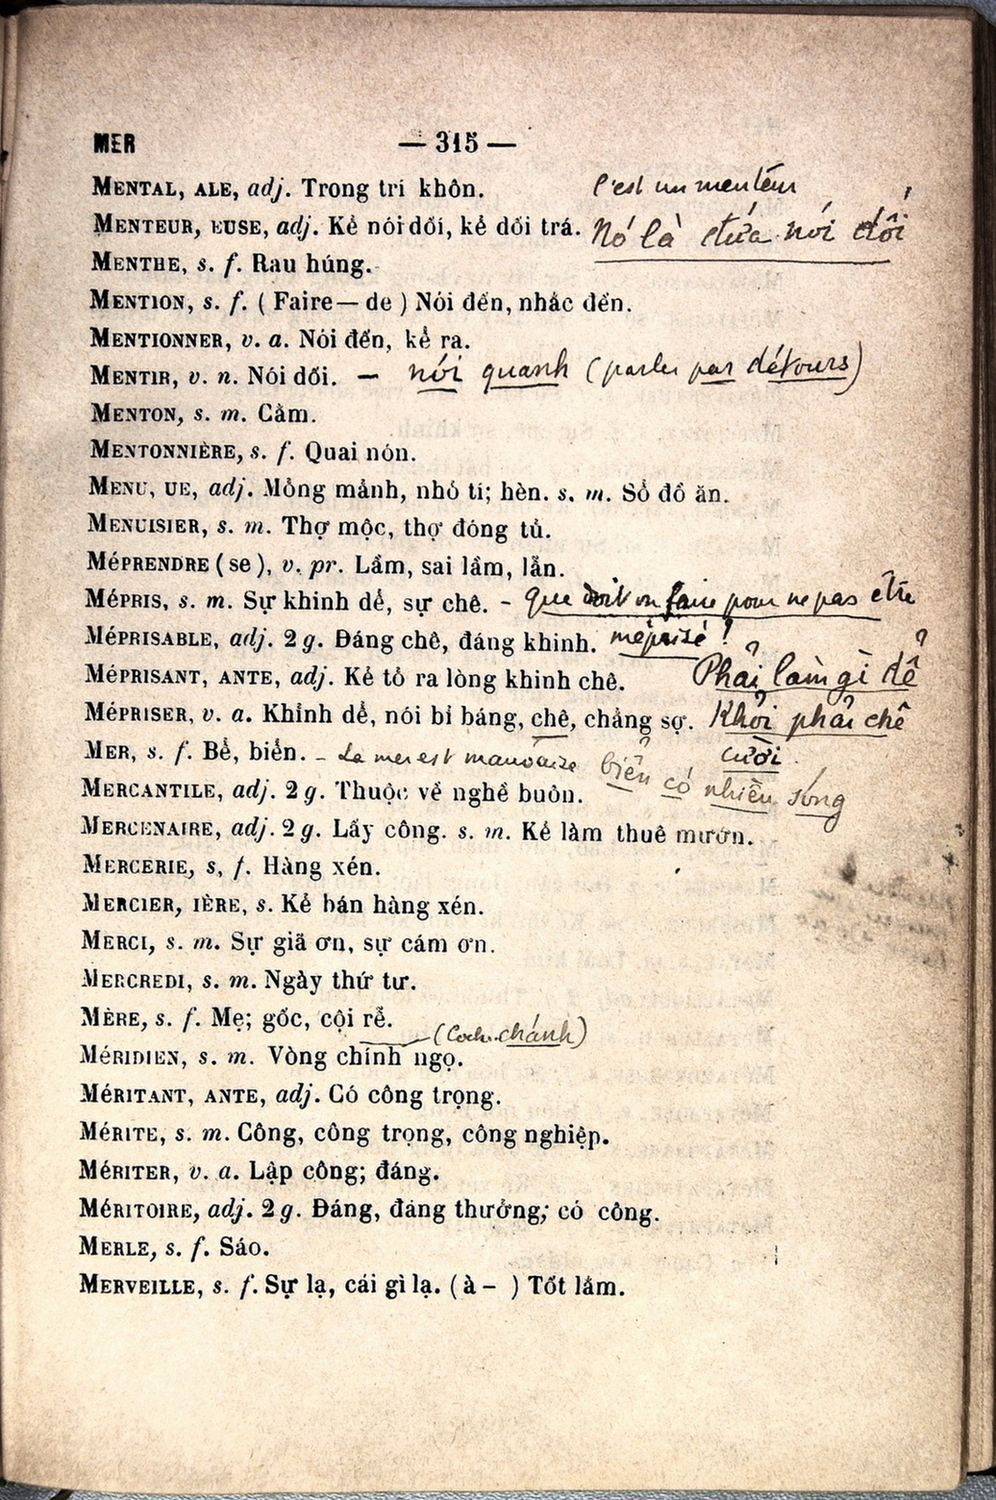 MER — 315 —
MENTAL, ALE, adj. Trong trí khôn.
c'est un menteur
MENTEUR, EUSE, adj. Kẻ nói dối, kẻ dối trá.
Nó là đứa nói dối
MENTHE, s. f. Rau húng.
MENTION, s. f. ( Faire — de ) Nói đến, nhắc đến.
MENTIONNER, v. a. Nói đến, kể ra.
MENTIR, v. n. Nói dối. — nói quanh (parler par détours)
MENTON, s. m. Cằm.
MENTONNIÈRE, s. f. Quai nón.
MENU, UE, adj. Mỏng mảnh, nhỏ tí; hèn. s. m. Sổ đồ ăn.
MENUISIER, s. m. Thợ mộc, thợ đóng tủ.
MÉPRENDRE (se), v. pr. Lầm, sai lầm, lẫn.
MÉPRIS, s. m. Sự khinh dể, sự chê. - que doit on faire pour ne pas être
MÉPRISABLE, adj. 2 g. Đáng chê, đáng khinh. méprisé !
MÉPRISANT, ANTE, adj. Kẻ tỏ ra lòng khinh chê. Phải làm gì để
MÉPRISER, v. a. Khinh dể, nói bỉ báng, chê, chẳng sợ. Khỏi phải chê
cười.
MER, s. f. Bể, biển. - La mer est mauvaise biển có nhiều sóng
MERCANTILE, adj. 2 g. Thuộc về nghề buôn.
MERCENAIRE, adj. 2 g. Lấy công. s. m. Kẻ làm thuê mướn.
MERCERIE, s, f. Hàng xén.
MERCIER, IÈRE, s. Kẻ bán hàng xén.
MERCI, s. m. Sự giã ơn, sự cám ơn.
MERCREDI, s. m. Ngày thứ tư.
MÈRE, s. f. Mẹ; gốc, cội rễ.
(Coch. chánh)
MÉRIDIEN, s. m. Vòng chính ngọ.
MÉRITANT, ANTE, adj. Có công trọng.
MÉRITE, s. m. Công, công trọng, công nghiệp.
MÉRITER, v. a. Lập công; đáng.
MÉRITOIRE, adj. 2 g. Đáng, đáng thưởng; có công.
MERLE, s. f. Sáo.
MERVEILLE, s. f. Sự lạ, cái gì lạ. (à - ) Tốt lắm.